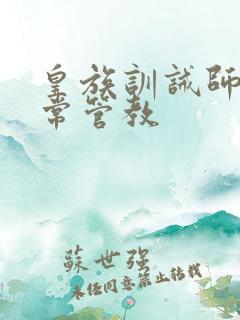 皇族訓誡師
常管教
蘇世强
未经同意禁止转载